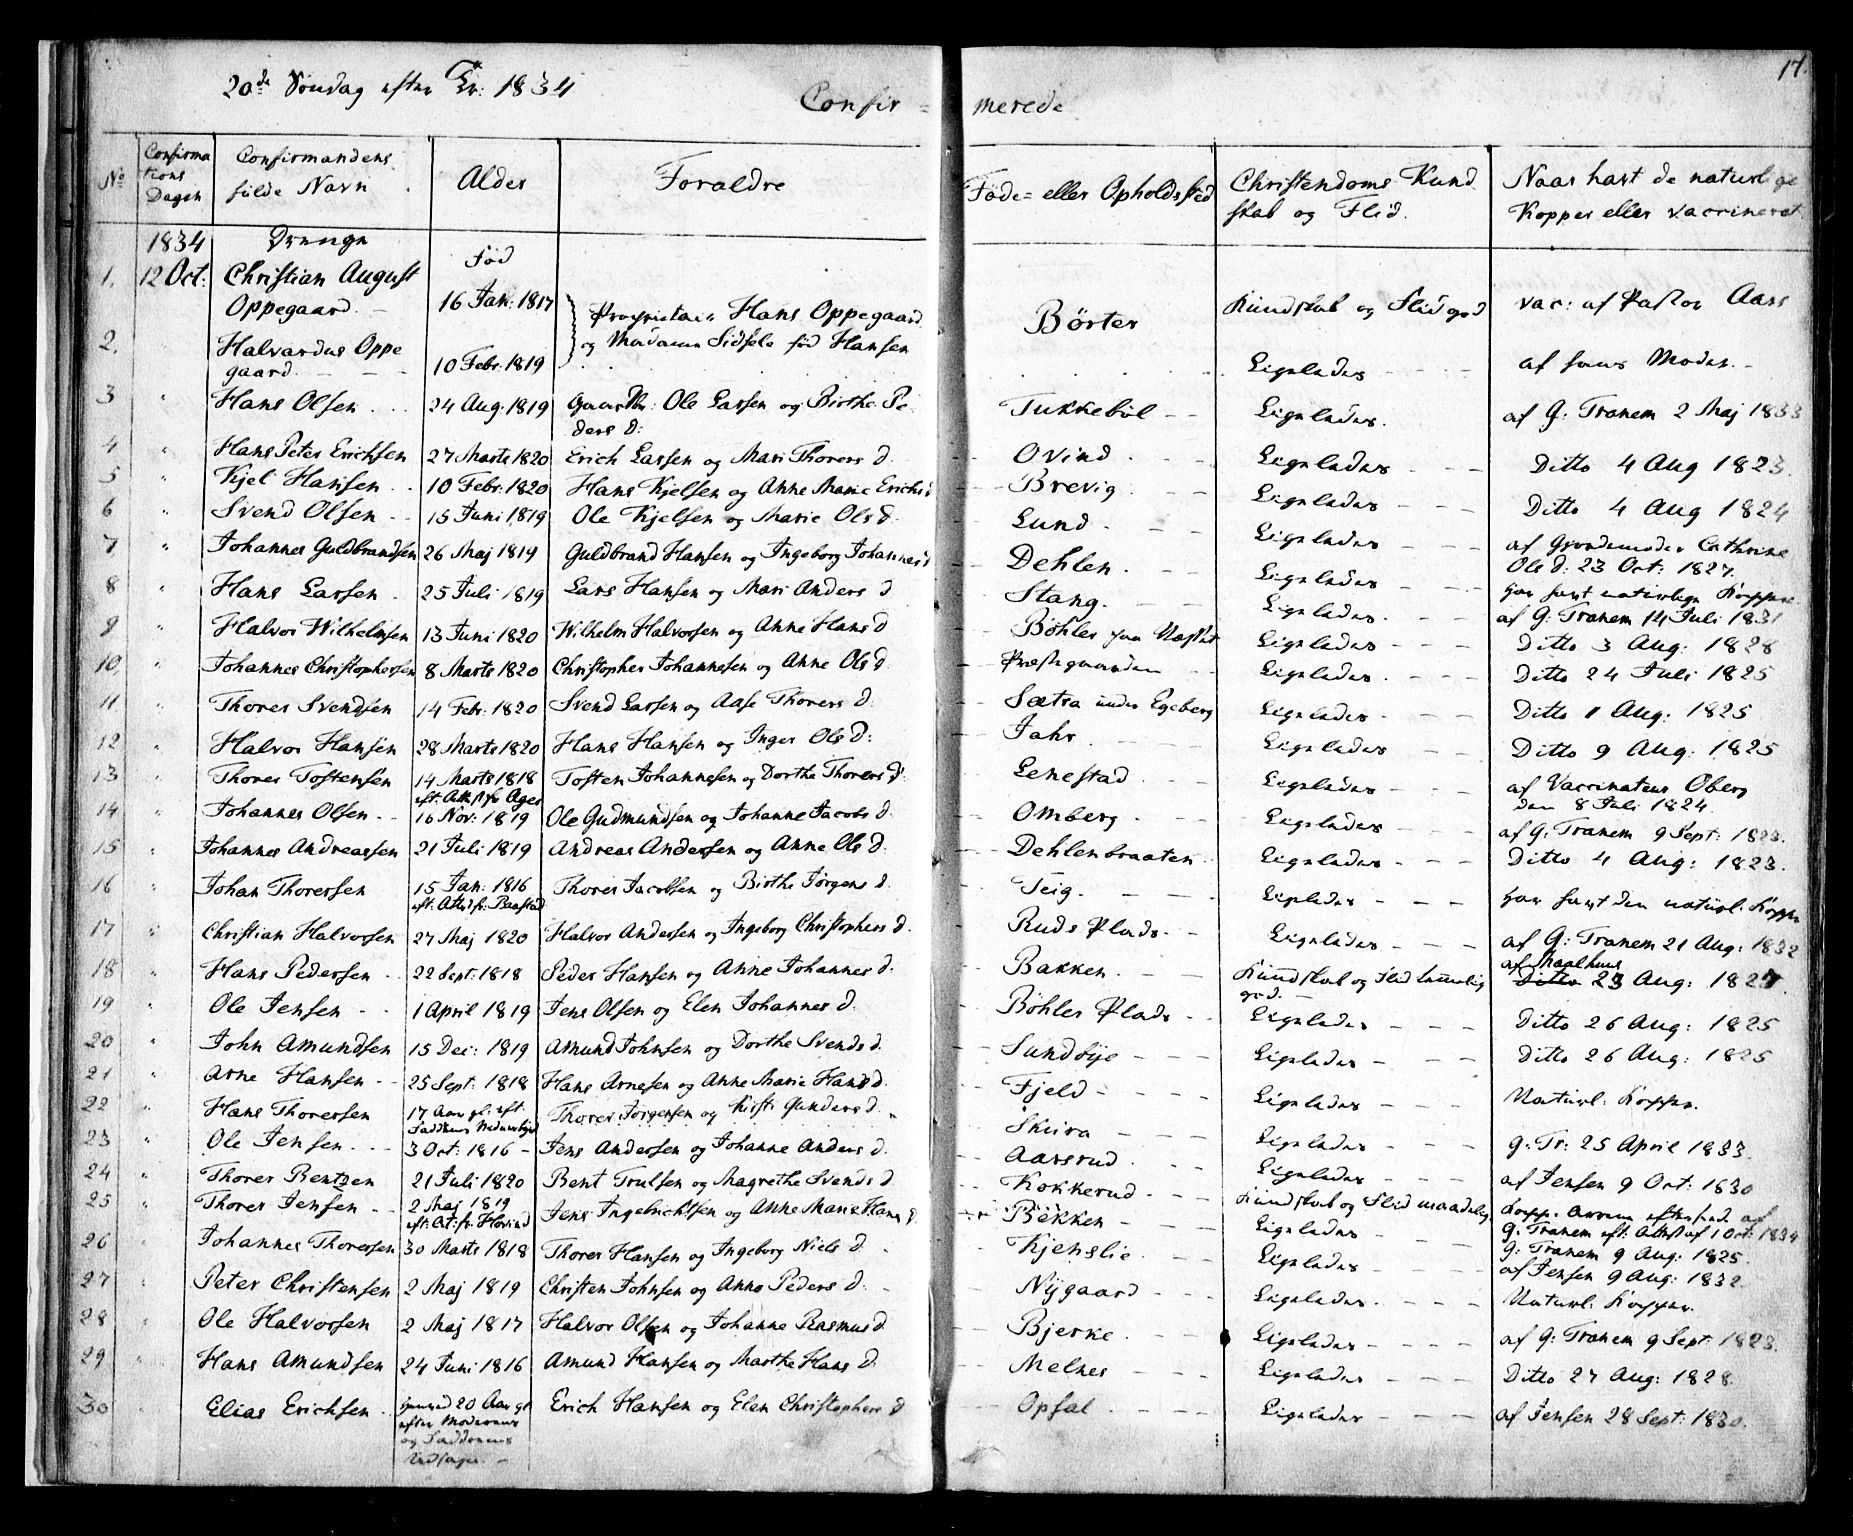 17.
20de Søndag efter Tr: 1834
Confir = merede
No
Confirma
tions
Dagen
Confirmandens
fulde Navn
Alder
Foraldre
Føde= eller Opholdssted
Christendoms Kund
skab og Flid.
Naar havt de naturlige
Kopper eller vaccineret
1834 Drenge Fød
1. 12 Oct: Christian August
Oppegaard. 16 Jan: 1817 Proprietair Hans Oppegaard Børter Kundskab og Flid god vac: af Pastor Aars
2. Halvardus Oppe
gaard. 10 Febr: 1819 og Madame Sidsele fød Hansen Ligeledes af hans Moder.
3 " Hans Olsen 24 Aug. 1819 Gaardm: Ole Larsen og Birthe Pe
ders d: Tukkebøl Ligeledes. af G: Tranem 2 Maj 1833
4 " Hans Peter Erichsen 27 Marts 1820 Erich Larsen og Mari Thorers d. Ovind Ligeledes Ditto 4 Aug 1823
5 " Kjel Hansen 10 Febr: 1820 Hans Kjelsen og Anne Marie Erichs d Brevig Ligeledes Ditto 4 Aug 1824
6 " Svend Olsen 15 Juni 1819 Ole Kjelsen og Marie Ols d. Lund Ligeledes af Gjordemoder Cathrine
Ols d: 23 Oct: 1827.
7 " Johannes Guldbrandsen 26 Maj 1819 Guldbrand Hansen og Ingeborg Johannes d Dehlen Ligeledes har havt naturlige Kopper
8 " Hans Larsen 25 Juli 1819 Lars Hansen og Mari Anders d Stang. Ligeledes. af G: Tranem 14 Juli 1831
9 " Halvor Wilhelmsen 13 Juni 1820 Wilhelm Halvorsen og Anne Hans d Bøhler Ligeledes Ditto 3 Aug: 1828
10. " Johannes Christophersen 8 Marts 1820 Christopher Johannesen og Anne Ols d. Præstegaarden Ligeledes Ditto 24 Juli 1825
11 Thorer Svendsen 14 Febr: 1820 Svend Larsen og Aase Thorers d. Sætra under Egeberg Ligeledes Ditto 1 Aug: 1825
12 " Halvor Hansen 28 Marts 1820 Hans Hansen og Inger Ols d: Jahr Ligeledes Ditto 9 Aug. 1825
13 " Thorer Tostensen 14 Marts 1818
eft: Attest fr Ager Tosten Johannesen og Dorthe Thorers d: Lenestad Ligeledes af Vaccinateur Oberg
den 8 Juli 1824.
14 " Johannes Olsen 16 Nov: 1819 Ole Gudmundsen og Johanne Jacobs d. Omberg Ligeledes af G: Tranem 9 Sept: 1823.
15 " Johannes Andreassen 21 Juli 1819 Andreas Andersen og Anne Ols d. Dehlenbraaten Ligeledes Ditto 4 Aug: 1823.
16 " Johan Thorersen 15 Jan: 1816
eft: Attest fr: Baastad Thorer Jacobsen og Birthe Jørgens d. Teig. Ligeledes har havt den naturl: Kopper
17 " Christian Halvorsen 27 Maj 1820 Halvor Andersen og Ingeborg Christophers d. Ruds Plads Ligeledes af G: Tranem 21 Aug: 1832
18 " Hans Pedersen 22 Sept: 1818 Peder Hansen og Anne Johannes d. Bakken Kundskab og Flid temmelig
god. af Maalhuus
Ditto 23 Aug: 1827.
19 " Ole Jensen 1 April 1819 Jens Olsen og Elen Johannes d. Bøhler Plads Ligeledes Ditto 26 Aug: 1825
20 " John Amundsen 15 Dec: 1819 Amund Johnsen og Dorthe Svends d. Sundbye Ligeledes Ditto 26 Aug: 1825
21 " Arne Hansen 25 Sept: 1818 Hans Arnesen og Anne Marie Hans d. Fjeld Ligeledes Naturl: Kopper.
22 " Hans Thorersen 17 Aar gl: eft. Thorer Jørgensen og Kirsti Gunders d. Skura Ligeledes g: Tr: 25 April 1833.
23 " Ole Jensen 3 Oct: 1816 Jens Andersen og Johanne Anders d. Aarsrud Ligeledes af Jensen 9 Oct: 1830
24 " Thorer Bentzen 21 Juli 1820 Bent Trulsen og Magrethe Svends d Kokkerud Kundskab og Flid maadelig
25 " Thorer Jensen 2 Maj 1819 Jens Ingebrichtsen og Anne Marie Hans d. Bekken Ligeledes g: Tranem eft: Attest af 1 Oct: 1834
26 " Johannes Thorersen 30 Marts 1818 Thorer Hansen og Ingeborg Niels d. Kjenslie Ligeledes g: Tranem 9 Aug: 1825.
af Jensen 9 Aug: 1832
27 Peter Christensen 2 Maj 1819 Christen Johnsen og Anne Peders d. Nygaard Ligeledes Naturl: Kopper.
28 Ole Halvorsen 2 Maj 1817 Halvor Olsen og Johanne Rasmus d Bjerke Ligeledes af G: Tranem 9 Sept: 1823.
29 Hans Amundsen 24 Juni 1816 Amund Hansen og Marthe Hans d. Melnes Ligeledes Ditto 27 Aug: 1828.
30 Elias Erichsen 20 Aar gl
efter Moderens
og Fadderens
Udsagn. Erich Hansen og Elen Christophers d Opsal Ligeledes af Jensen 28 Sept: 1830.